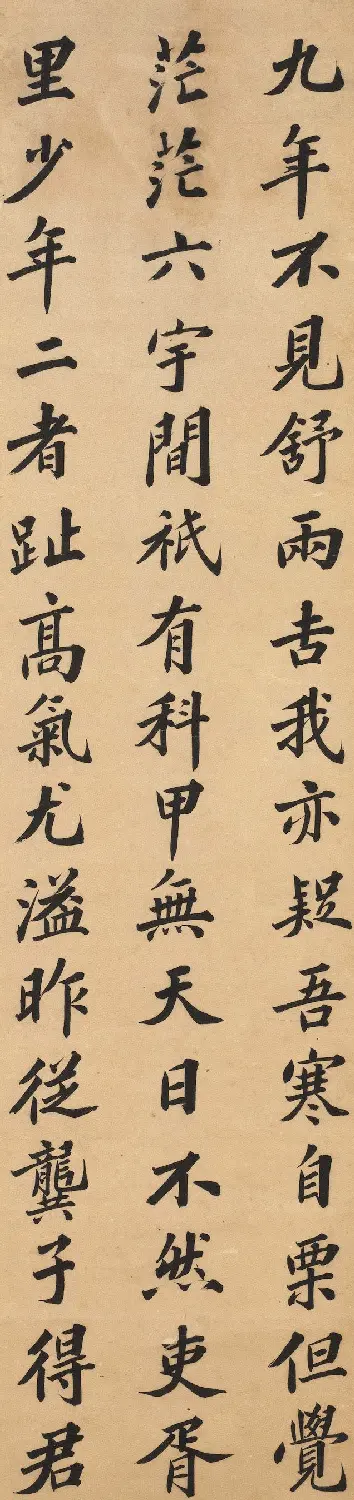 九年不見舒雨吉我亦疑吾寒自栗但覺
茫茫六宇間祇有科甲無天日不然吏胥
里少年二者趾高氣尤溢昨從龔子得君